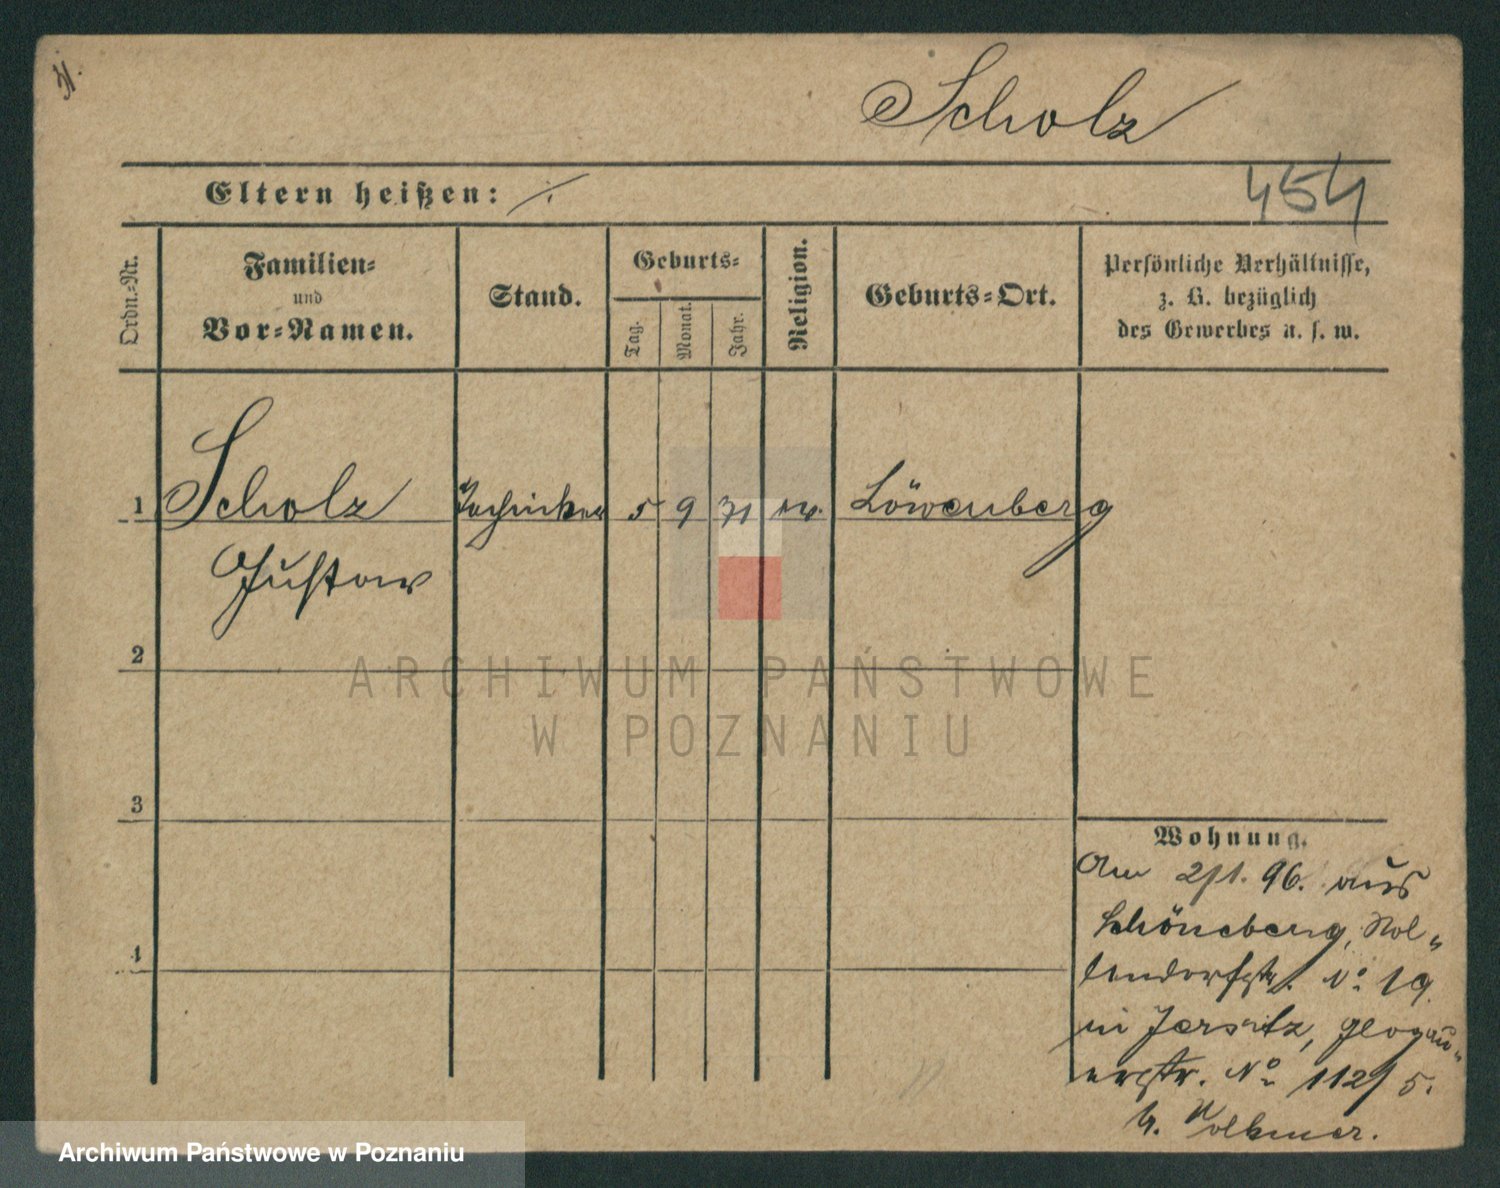 Scholz
Eltern heißen: ./.
454
Ordn.-Nr.
Familien-
und
Vor-Namen.
Stand.
Geburts-
Tag.
Monat.
Jahr.
Religion.
Geburts-Ort.
Persönliche Verhältnisse,
z. B. bezüglich
des Gewerbes u. s. w.
1 Scholz Techniker 5 9 71 ev. Löwenberg
Gustav
2
3
4
Wohnung.
Am 2/1. 96. aus
Schöneberg, Nol-
lendorfstr. No 19.
in Jersitz, Glogau-
erstr. No 112/5.
b. Volkmer.
ARCHIWUM PAŃSTWOWE
W POZNANIU
Archiwum Państwowe w Poznaniu